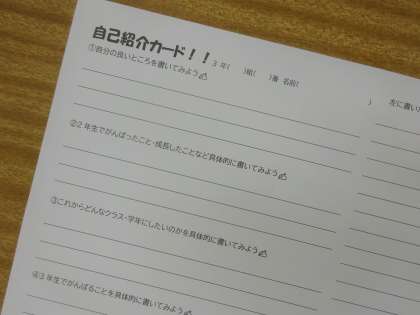 自己紹介カード！！ 3 年( )組( )番 名前( )
①自分の良いところを書いてみよう✍
②2 年生でがんばったこと・成長したことなど具体的に書いてみよう✍
③これからどんなクラス・学年にしたいのかを具体的に書いてみよう✍
④3 年生でがんばることを具体的に書いてみよう✍
左に書い